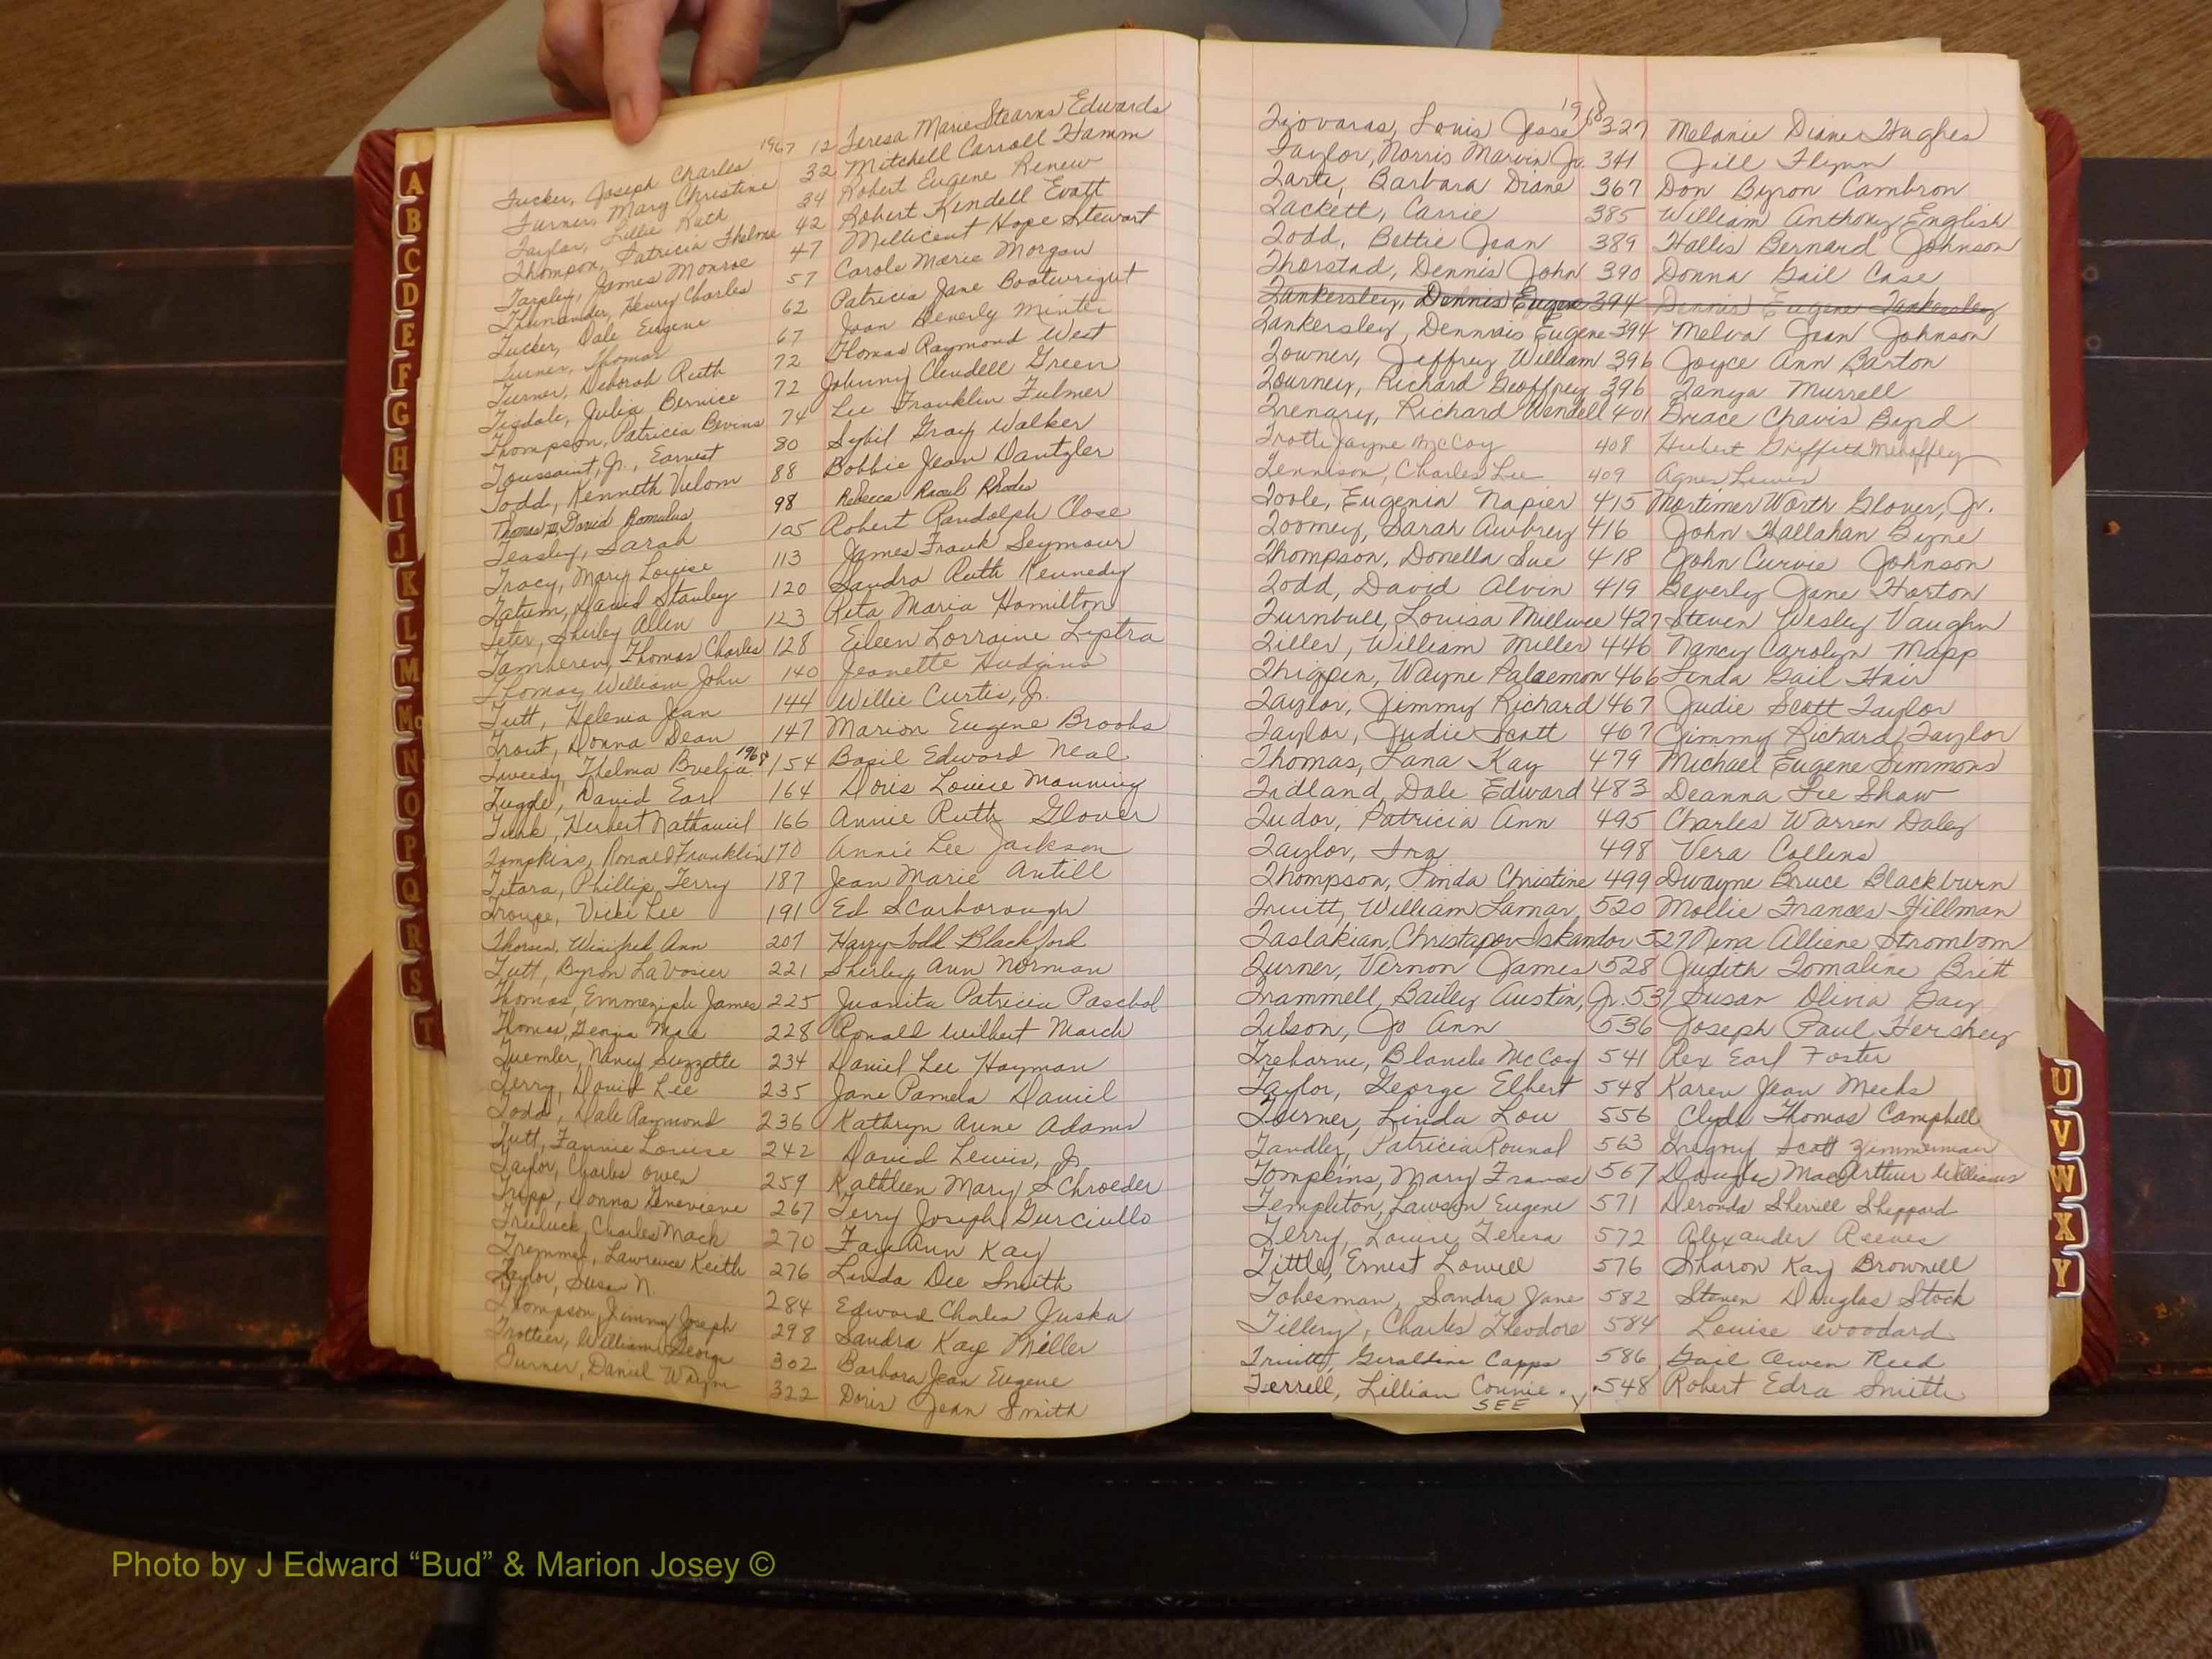 1967
Tucker, Joseph Charles 12 Teresa Marie Stearns Edwards
Turner, Mary Christine 32 Mitchell Carroll Hamm
Taylor, Lillie Ruth 34 Robert Eugene Renew
Thompson, Patricia Thelma 42 Robert Kendell Evatt
Tarpley, James Monroe 47 Millicent Hope Stewart
Henry Charles 57 Carole Marie Morgan
Tucker, Dale Eugene 62 Patricia Jane Boatwright
Turner, Thomas 67 Joan Beverly Minter
Turner, Deborah Ruth 72 Thomas Raymond West
Tisdale, Julia Bernice 72 Johnny Clendell Green
Thompson, Patricia Bevins 74 Lee Franklin Fulmer
Toussaint, Jr., Earnest 80 Sybil Gray Walker
Todd, Kenneth 88 Bobbie Jean Dantzler
Thomas III, David Romulus 98 Rebecca Raoul Rhodes
Teasley, Sarah 105 Robert Randolph Close
Tracy, Mary Louise 113 James Frank Seymour
Tatum, David Stanley 120 Sandra Ruth Kennedy
Teter, Shirley Allen 123 Rita Maria Hamilton
Thomas Charles 128 Eileen Lorraine
Thomas, William John 140 Jeanette Hudgins
Tutt, Helenia Jean 144 Willie Curtis, Jr.
Trout, Donna Dean 147 Marion Eugene Brooks
1968
Tweedy, Thelma 154 Basil Edward Neal
Tuggle, David Earl 164 Doris Louise Manning
Turk, Herbert Nathaniel 166 Annie Ruth Glover
Tompkins, Ronald Franklin 170 Annie Lee Jackson
Phillip Terry 187 Jean Marie Antill
Troupe, Vicki Lee 191 Ed Scarborough
Winifred Ann 207 Harry Todd Blackford
Tutt, Byron LaVosier 221 Shirley Ann Norman
Thomas, James 225 Juanita Patricia Paschal
Thomas, Mae 228 Ronald Wilbert March
Tuemler, Nancy Suzzette 234 Daniel Lee Hayman
Terry, David Lee 235 Jane Pamela Daniel
Todd, Dale Raymond 236 Kathryn Anne Adams
Tutt, Fannie Louise 242 David Lewis, Jr
Taylor, Charles Owen 259 Kathleen Mary Schroeder
Tripp, Donna Genevieve 267 Terry Joseph Gurciullo
Truluck, Charles Mack 270 Faye Ann Kay
Tremmel, Lawrence Keith 276 Linda Dee Smith
Taylor, Susan N. 284 Edward Charles Juska
Thompson, Jimmy Joseph 298 Sandra Kay Miller
Trottier, William George 302 Barbara Jean Eugene
Turner, Daniel Wayne 322 Doris Jean Smith
1968
Tzovaras, Louis Jesse 327 Melanie Diane Hughes
Taylor, Norris Marvin Jr. 341 Jill Flynn
Tarte, Barbara Diane 367 Don Byron Cambron
Tackett, Carrie 385 William Anthony English
Todd, Bettie Jean 389 Hallis Bernard Johnson
Thorstad, Dennis John 390 Donna Gail Case
Tankersley, Dennis Eugene 394 Dennis Eugene Tankersley
Tankersley, Dennais Eugene 394 Melva Jean Johnson
Towner, Jeffrey William 396 Joyce Ann Barton
Tourney, Richard Geoffrey 396 Tanya Murrell
Trenary, Richard Wendell 401 Grace Chavis Byrd
Trotti Jayne McCoy 408 Hubert Griffith Mehaffey
Tennison, Charles Lee 409 Agnes Lewis
Toole, Eugenia Napier 415 Mortimer Worth Glover, Jr.
Toomey, Sarah Awbrey 416 John Hallahan Byne
Thompson, Donella Sue 418 John Curvie Johnson
Todd, David Alvin 419 Beverly Jane Horton
Turnbull, Louisa Millwee 427 Steven Wesley Vaughn
Tiller, William Miller 446 Nancy Carolyn Mapp
Thigpen, Wayne Palaemon 466 Linda Gail Hair
Taylor, Jimmy Richard 467 Judie Scott Taylor
Taylor, Judie Scott 467 Jimmy Richard Taylor
Thomas, Lana Kay 479 Michael Eugene Simmons
Tidland, Dale Edward 483 Deanna Fre Shaw
Tudor, Patricia Ann 495 Charles Warren Daley
Taylor, Ira 498 Vera Collins
Thompson, Linda Christine 499 Dwayne Bruce Blackburn
Truitt, William Lamar 520 Mollie Frances Hillman
Taslakian, Christapor Iskandor 527 Nina Alliene Strombom
Turner, Vernon James 528 Judith Tomaline Britt
Trammell, Bailey Austin, Jr. 531 Susan Olivia Gay
Tilson, Jo Ann 536 Joseph Paul Hershey
Treharne, Blanche McCoy 541 Rex Earl Foster
Taylor, George Elbert 548 Karen Jean Meeks
Turner, Linda Lou 556 Clyde Thomas Campbell
Tandler, Patricia Rounal 563 Gregory Scott Zimmerman
Tompkins, Mary Frances 567 Douglas MacArthur Williams
Templeton, Lawson Eugene 571 Deronda Sherrill Sheppard
Terry, Louise Teresa 572 Alexander Reeves
Tittle, Ernest Lowell 576 Sharon Kay Brownell
Tohesman, Sandra Jane 582 Steven Douglas Stock
Tillery, Charles Theodore 584 Louise Woodard
Truitt, Geraldine Capps 586 Gail Owen Reed
Terrell, Lillian Connie 548 Robert Edra Smith
SEE
A
B
C
D
E
F
G
H
I
J
K
L
M
Mc
N
O
P
Q
R
S
T
U
V
W
X
Y
Photo by J Edward “Bud” & Marion Josey ©